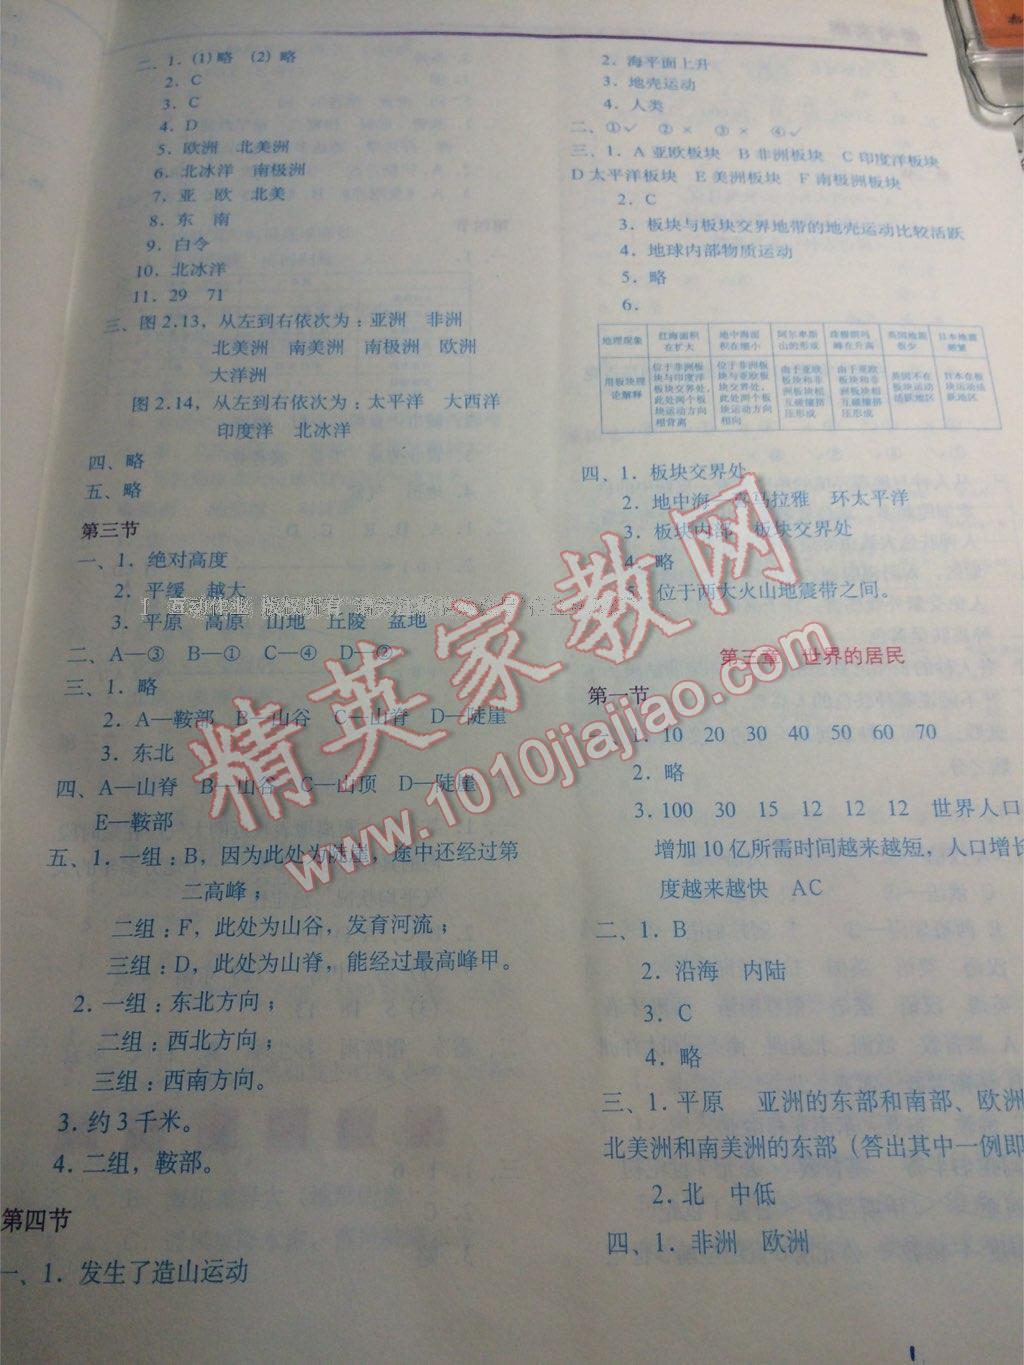 二、1. (1)略 (2)略
2. C
3. C
4. D
5. 欧洲 北美洲
6. 北冰洋 南极洲
7. 亚 欧 北美
8. 东 南
9. 白令
10. 北冰洋
11. 29 71
三、图 2.13，从左到右依次为：亚洲 非洲
北美洲 南美洲 南极洲 欧洲
大洋洲
图 2.14，从左到右依次为：太平洋 大西洋
印度洋 北冰洋
四、略
五、略
第三节
一、1. 绝对高度
2. 平缓 越大
3. 平原 高原 山地 丘陵 盆地
二、A—③ B—① C—④ D—②
三、1. 略
2. A—鞍部 B—山谷 C—山脊 D—陡崖
3. 东北
四、A—山脊 B—山谷 C—山顶 D—陡崖
E—鞍部
五、1. 一组：B，因为此处为陡崖，途中还经过第
二高峰；
二组：F，此处为山谷，发育河流；
三组：D，此处为山脊，能经过最高峰甲。
2. 一组：东北方向；
二组：西北方向；
三组：西南方向。
3. 约3千米。
4. 二组，鞍部。
第四节
一、1. 发生了造山运动
2. 海平面上升
3. 地壳运动
4. 人类
二、①✓ ②× ③× ④✓
三、1. A 亚欧板块 B 非洲板块 C 印度洋板块
D 太平洋板块 E 美洲板块 F 南极洲板块
2. C
3. 板块与板块交界地带的地壳运动比较活跃
4. 地球内部物质运动
5. 略
6.
地理现象 红海面积在扩大 地中海面积在缩小 阿尔卑斯山的形成 珠穆朗玛峰在升高 英国地震极少 日本地震频繁
用板块理论解释 位于非洲板块与印度洋板块交界处，此处两个板块运动方向相背离 位于非洲板块与亚欧板块交界处，此处两个板块运动方向相向 由于亚欧板块和非洲板块相互碰撞挤压形成 由于亚欧板块和印度洋板块相互碰撞挤压形成 英国不在板块运动活跃地区 日本在板块运动活跃地区
四、1. 板块交界处
2. 地中海—喜马拉雅 环太平洋
3. 板块内部 板块交界处
4. 略
5. 位于两大火山地震带之间。
第三章 世界的居民
第一节
一、1. 10 20 30 40 50 60 70
2. 略
3. 100 30 15 12 12 12 世界人口
增加 10 亿所需时间越来越短，人口增长
度越来越快 AC
二、1. B
2. 沿海 内陆
3. C
4. 略
三、1. 平原 亚洲的东部和南部、欧洲
北美洲和南美洲的东部（答出其中一例即
2. 北 中低
四、1. 非洲 欧洲
精英家教网
www.1010jiajiao.com
1